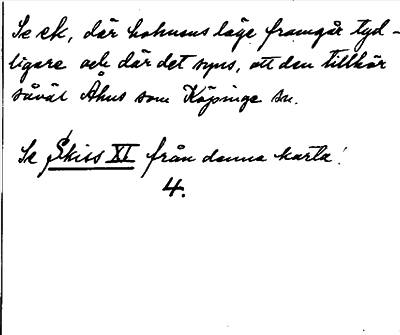 Se ek, där hohusns läge framgår tyd-
ligare och där det syns, att den tillhör
såväl Åhus som Köpinge sn.
Se Skiss XI från denna karta!
4.